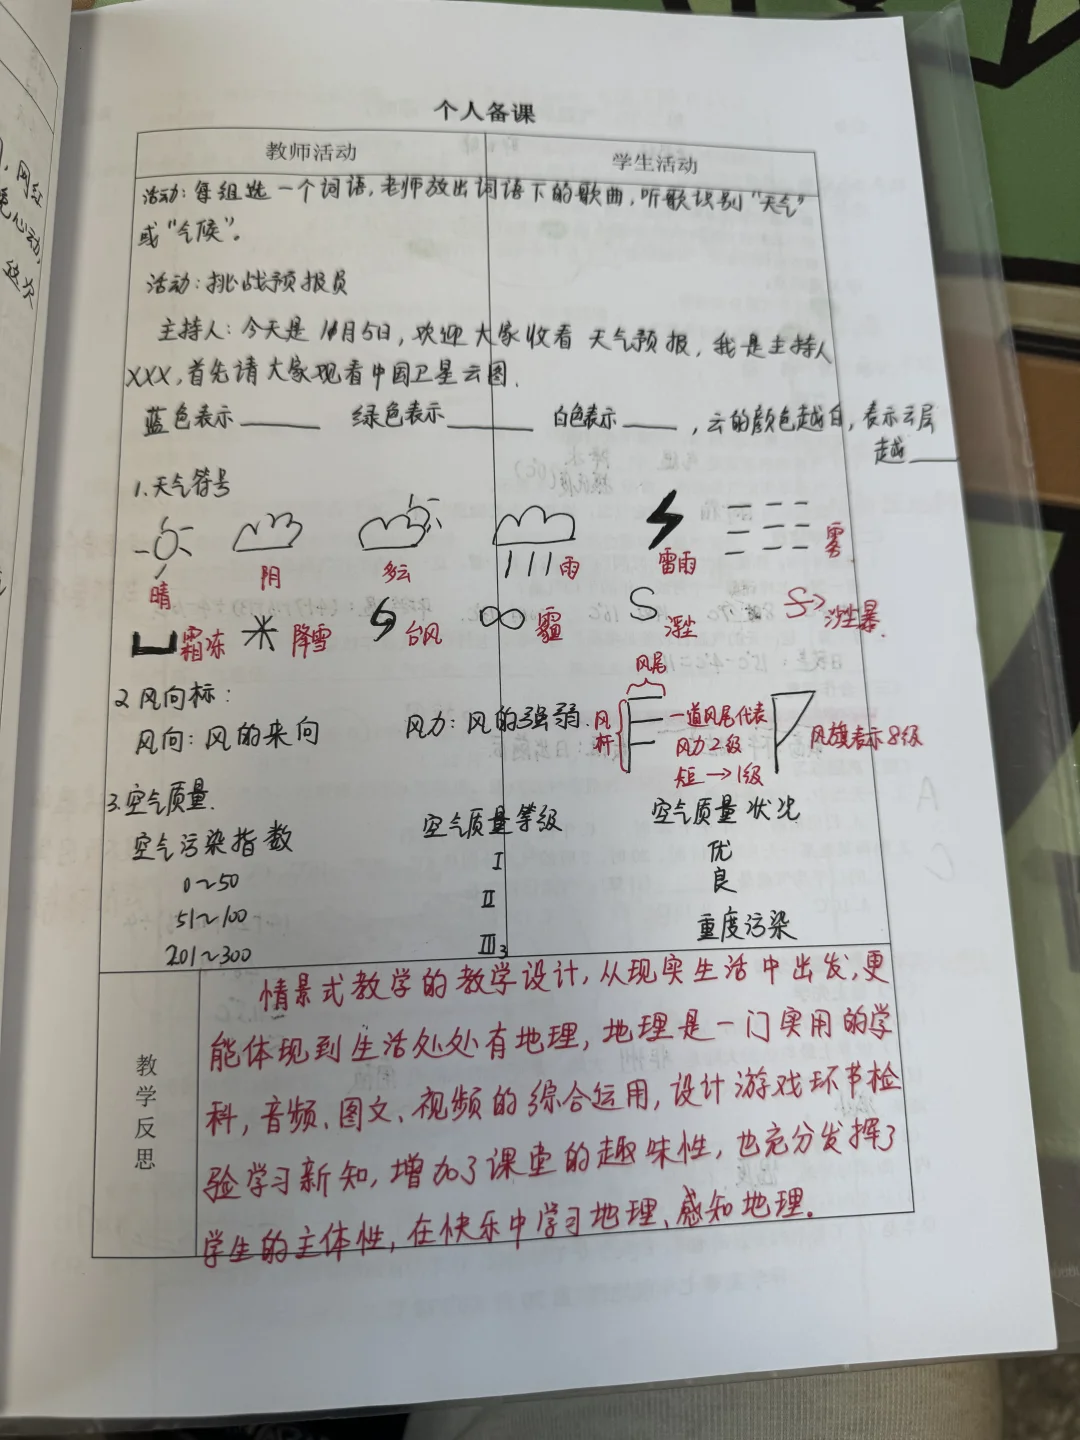 网红
心动,
这次
个人备课
教师活动 学生活动
活动:每组选一个词语,老师放出词语下的歌曲,听歌识别"天气"
或"气候"。
活动:挑战预报员
主持人:今天是11月5日,欢迎大家收看天气预报,我是主持人
XXX,首先请大家观看中国卫星云图.
蓝色表示______ 绿色表示______ 白色表示____,云的颜色越白,表示云层
越____
1.天气符号
晴 阴 多云 雨 雷雨 雾
霜冻 降雪 台风 霾 浮尘 沙尘暴.
2 风向标:
风向:风的来向 风力:风的强弱.
风尾
风杆
一道风尾代表
风力2级
短→1级
风旗表示8级
3.空气质量.
空气污染指数 空气质量等级 空气质量状况
0~50 I 优
51~100 II 良
201~300 III 重度污染
3
教学反思
情景式教学的教学设计,从现实生活中出发,更
能体现到生活处处有地理,地理是一门实用的学
科,音频、图文、视频的综合运用,设计游戏环节检
验学习新知,增加了课堂的趣味性,也充分发挥了
学生的主体性,在快乐中学习地理、感知地理.